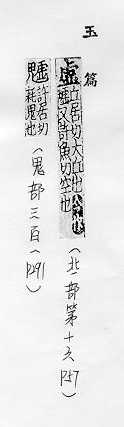 玉篇
虛 丘居切大丘也今作
墟又許魚切空也
(丠部第十六 P57)
魖 許居切
耗鬼也
(鬼部三百一 P291)